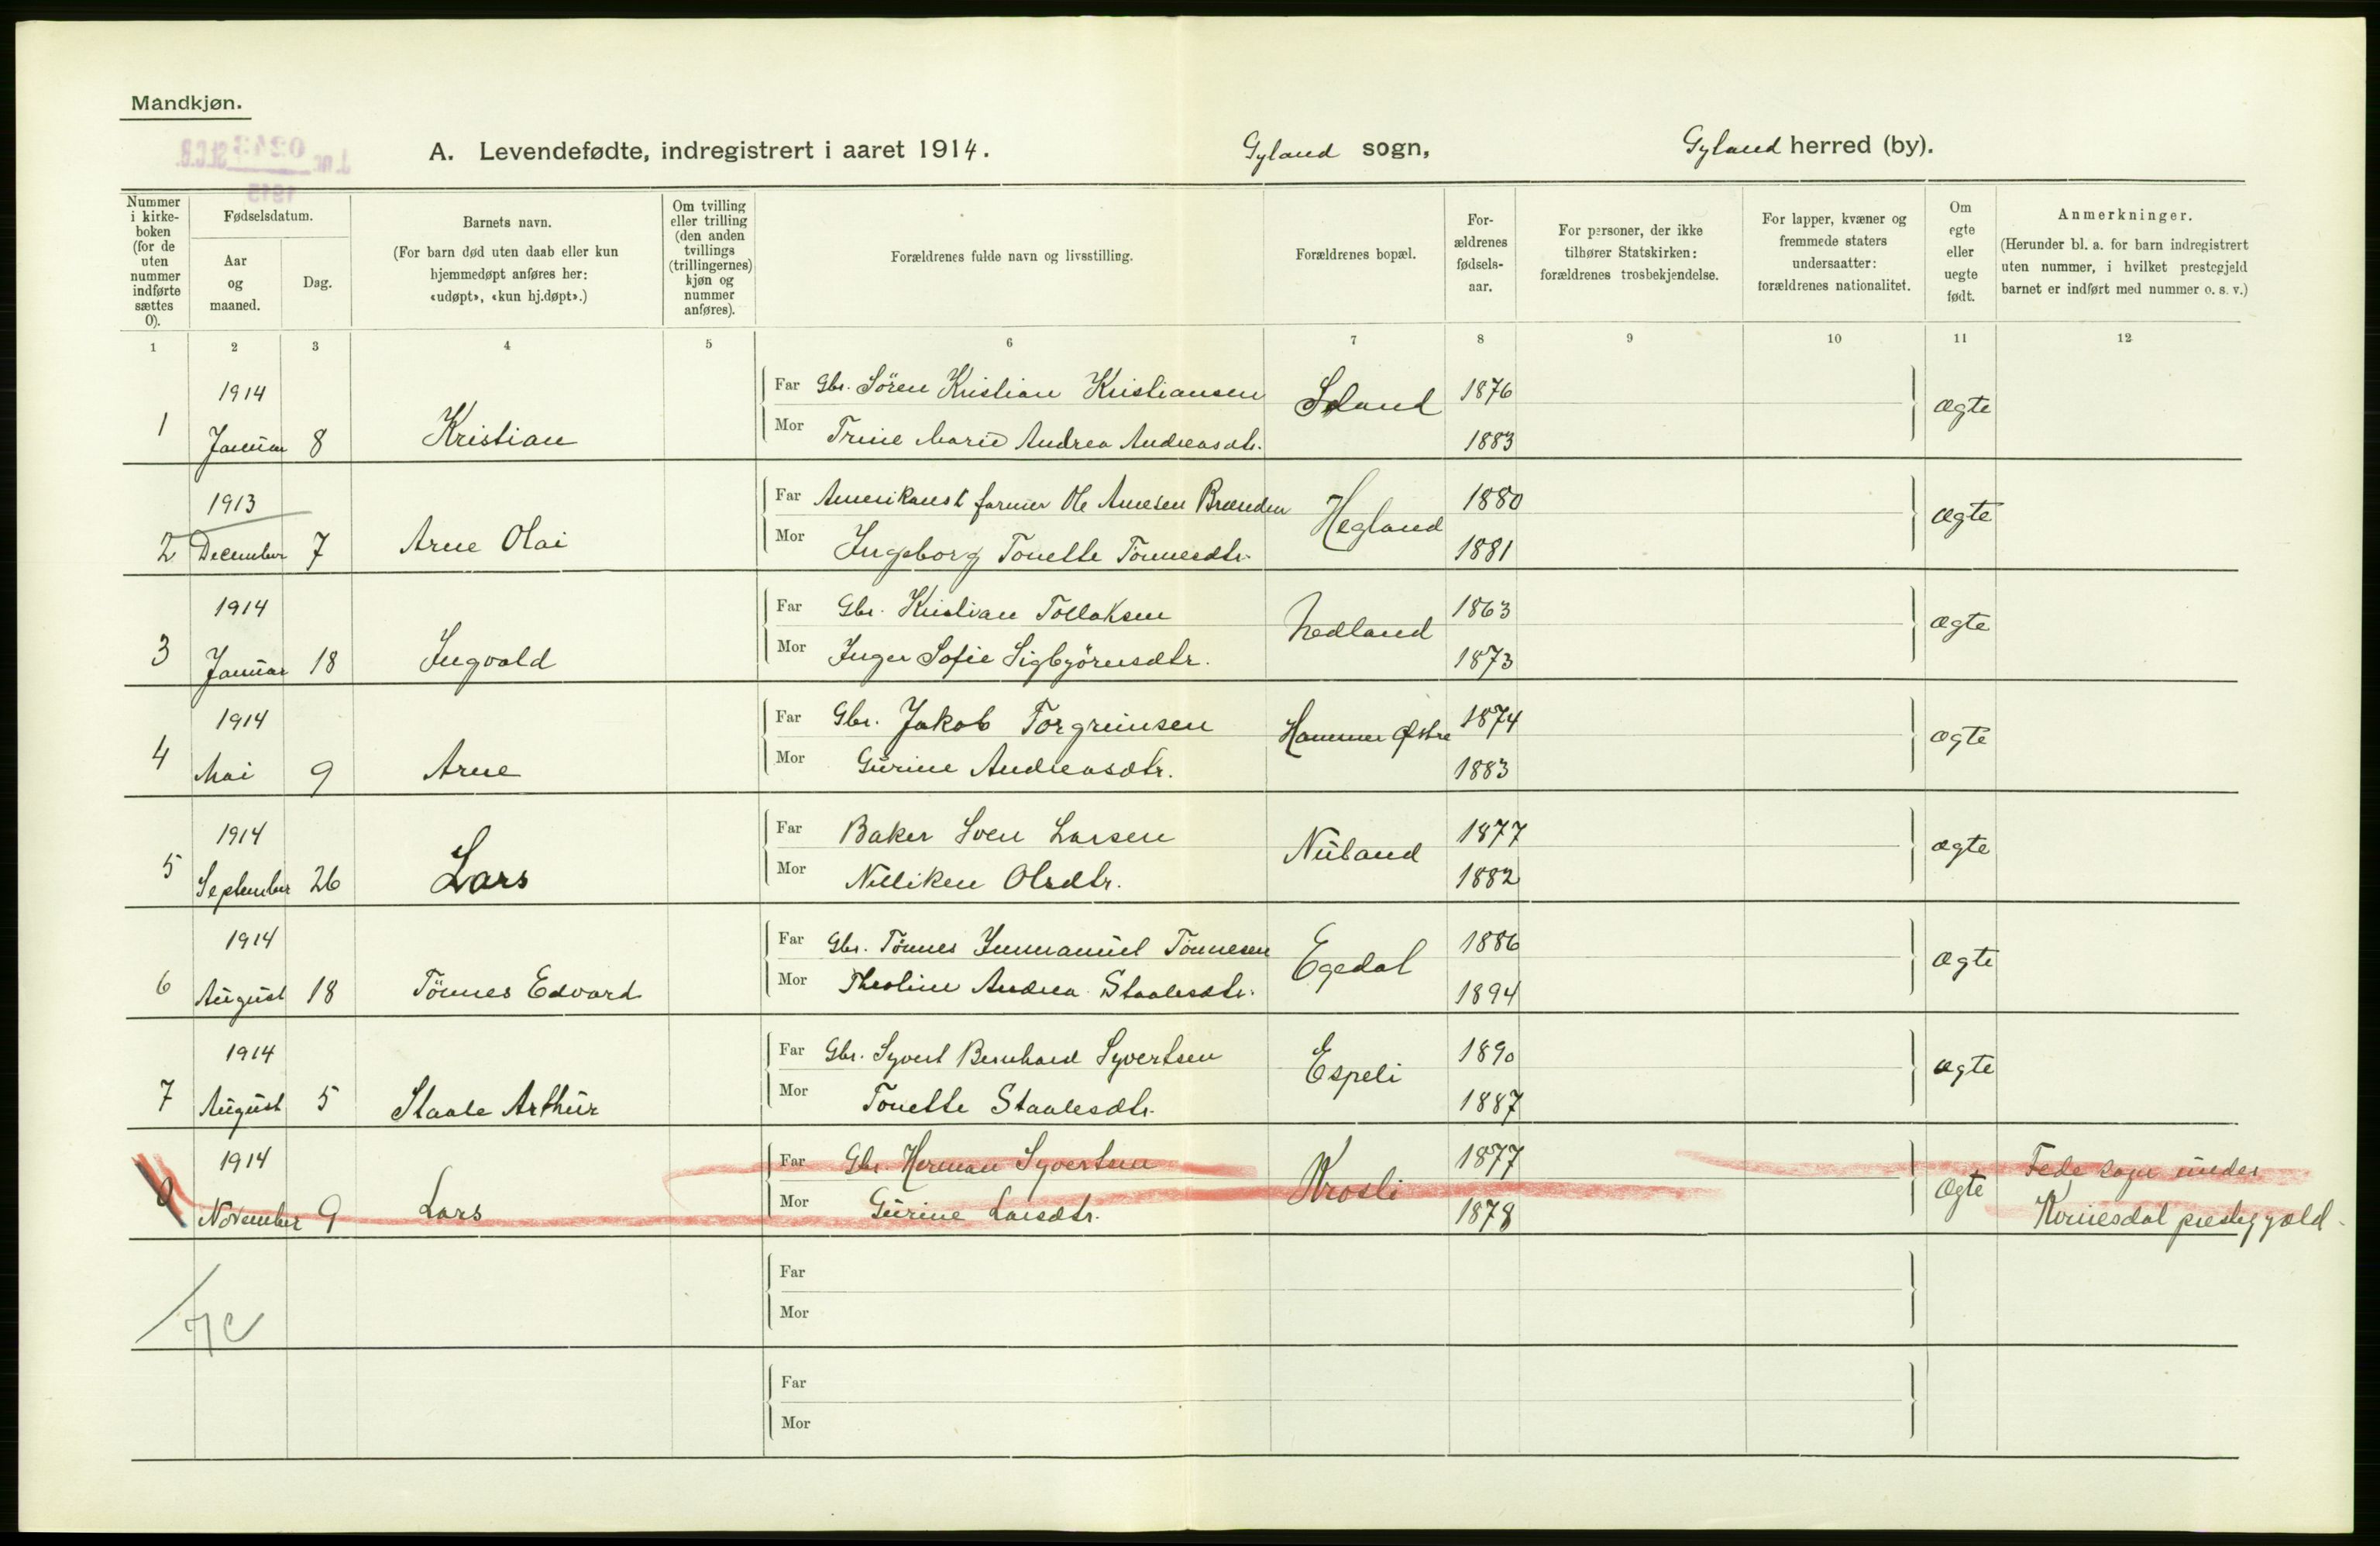 Mandkjøn.
J.nr. 0243 St.C.B.
1915
A. Levendefødte, indregistrert i aaret 1914. Gyland sogn, Gyland herred (by).
Nummer i kirke-boken (for de uten nummer indførte sættes 0).
Fødselsdatum.
Aar og maaned.
Dag.
Barnets navn.
(For barn død uten daab eller kun hjemmedøpt anføres her: «udøpt», «kun hj.døpt».)
Om tvilling eller trilling (den anden tvillings (trillingernes) kjøn og nummer anføres).
Forældrenes fulde navn og livsstilling.
Forældrenes bopæl.
For-ældrenes fødsels-aar.
For personer, der ikke tilhører Statskirken: forældrenes trosbekjendelse.
For lapper, kvæner og fremmede staters undersaatter: forældrenes nationalitet.
Om egte eller uegte født.
Anmerkninger.
(Herunder bl. a. for barn indregistrert uten nummer, i hvilket prestegjeld barnet er indført med nummer o. s. v.)
1 2 3 4 5 6 7 8 9 10 11 12
1914 Far Gbr. Sören Kristian Kristiansen 1876
1 Januar 8 Kristian Mor Trine Marie Andrea Andreasdtr. Seland 1883 ægte
1913 Far Amerikansk farmer Ole Arnesen Brænden 1880
2 December 7 Arne Olai Mor Ingeborg Tonette Tönnesdtr. Hegland 1881 ægte
1914 Far Gbr. Kristian Tollaksen 1863
3 Januar 18 Ingvald Mor Inger Sofie Sigbjörnsdtr. Nedland 1873 ægte
1914 Far Gbr. Jakob Torgrimsen 1874
4 Mai 9 Arne Mor Gurine Andreasdtr. Hammer Østre 1883 ægte
1914 Far Baker Sven Larsen 1877
5 September 26 Lars Mor Nilliken Olsdtr. Nuland 1882 ægte
1914 Far Gbr. Tönnes Immanuel Tönnesen 1886
6 August 18 Tönnes Edvard Mor Theoline Andrea Staalesdtr. Egedal 1894 ægte
1914 Far Gbr. Syvert Bernhard Syvertsen 1890
7 August 5 Staale Arthur Mor Tonette Staalesdtr. Espeli 1887 ægte
1914 Far Gbr. Herman Syvertsen 1877 Fede sogn under
0 November 9 Lars Mor Gurine Larsdtr. Krosli 1878 ægte Kvinesdal prestegjæld.
Far
Mor
Far
Mor